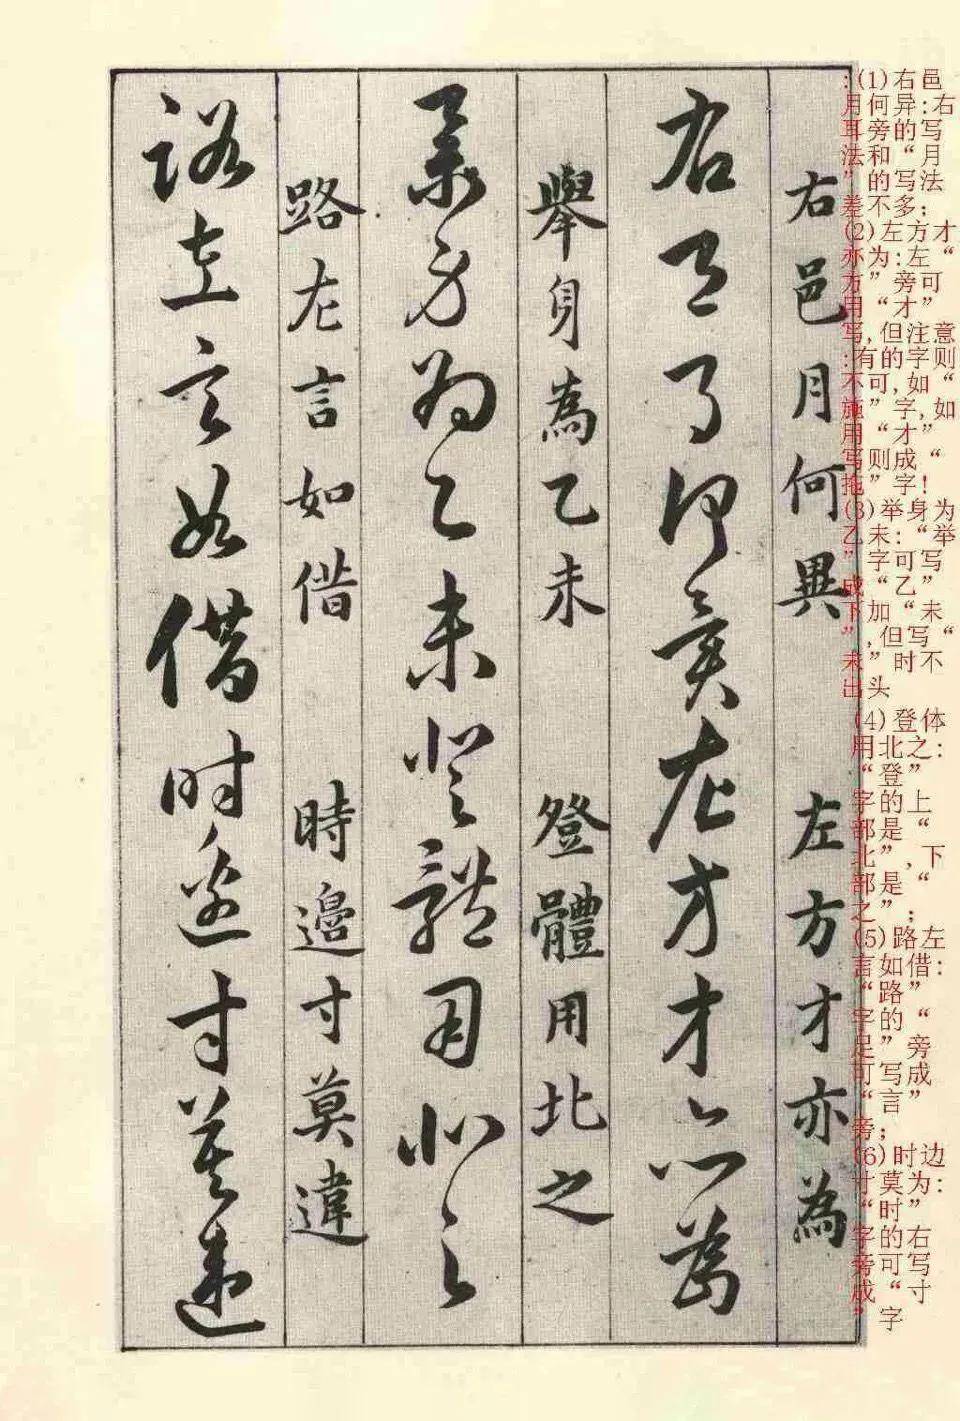 :(1)右邑
月何异:右
耳旁的写
法和“月
”的写法
差不多;
(2)左方才
亦为:左“
方”旁可
用“才”
写,但注意
:有的字则
不可,如“
施”字,如
用“才”
写则成“
拖”字!
(3)举身为
乙未:“举
”字可写
成“乙”
下加“未
”,但写“
未”时不
出头
(4)登体
用北之:
“登”
字的上
部是“
北”,下
部是“
之”;
(5)路左
言如借:
“路”
字的“
足”旁
可写成
“言”
旁;
(6)时边
寸莫为:
“时”
字的右
旁可写
成“寸
”字
右邑月何異 左方才亦為
右邑月何異左方才亦為
舉身為乙未 登體用北之
舉身為乙未登體用北之
路左言如借 時邊寸莫違
路左言如借時邊寸莫違